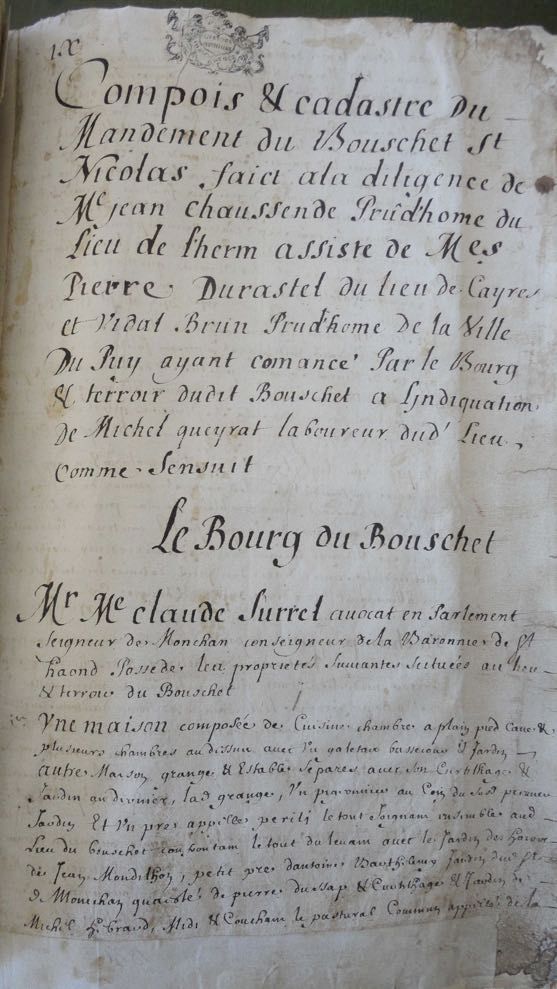 1X
Compois & cadastre Du
Mandement du Bouschet St
Nicolas faict ala diligence de
Me jean Chaussende Prûdhome du
Lieu de lherm assiste de Mes
Pierre Durastel du lieu de Cayres
et Vidal Brun Prudhome de la Ville
Du Puy ayant comancé Par le Bourg
& terroir dudit Bouschet a Lindiquation
de Michel queyrat laboureur dud' Lieu
comme Sensuit
Le Bourg du Bouschet
Mr Me claude Surrel avocat en Parlement
Seigneur de Monchan conseigneur de la Baronnie de St
haond Possede les proprietés suivantes scituées au lieu
& terroir du Bouschet
Vne maison composée de Cuisine chambre a plain pied Cave &
plusieurs chambres au dessus avec Vn galetas basse cour & Jardin
autre Maison grange & Estable séparés avec son Curtilhage &
Jardin au dernier, lad grange, Vn pigeonnier au Coin du Susd premier
Jardin Et Vn pres appellé le tout Joignant ensemble aud
Lieu du bouschet confrontant le tout du levant avec le Jardin des
de Jean petit pre dantoine Barthelemy Jardin dud Sr
de Monchan de pierre & Curtilhage & Jardin de
Michel hebrard, Midi & Couchant le pastural Commun appellé de la